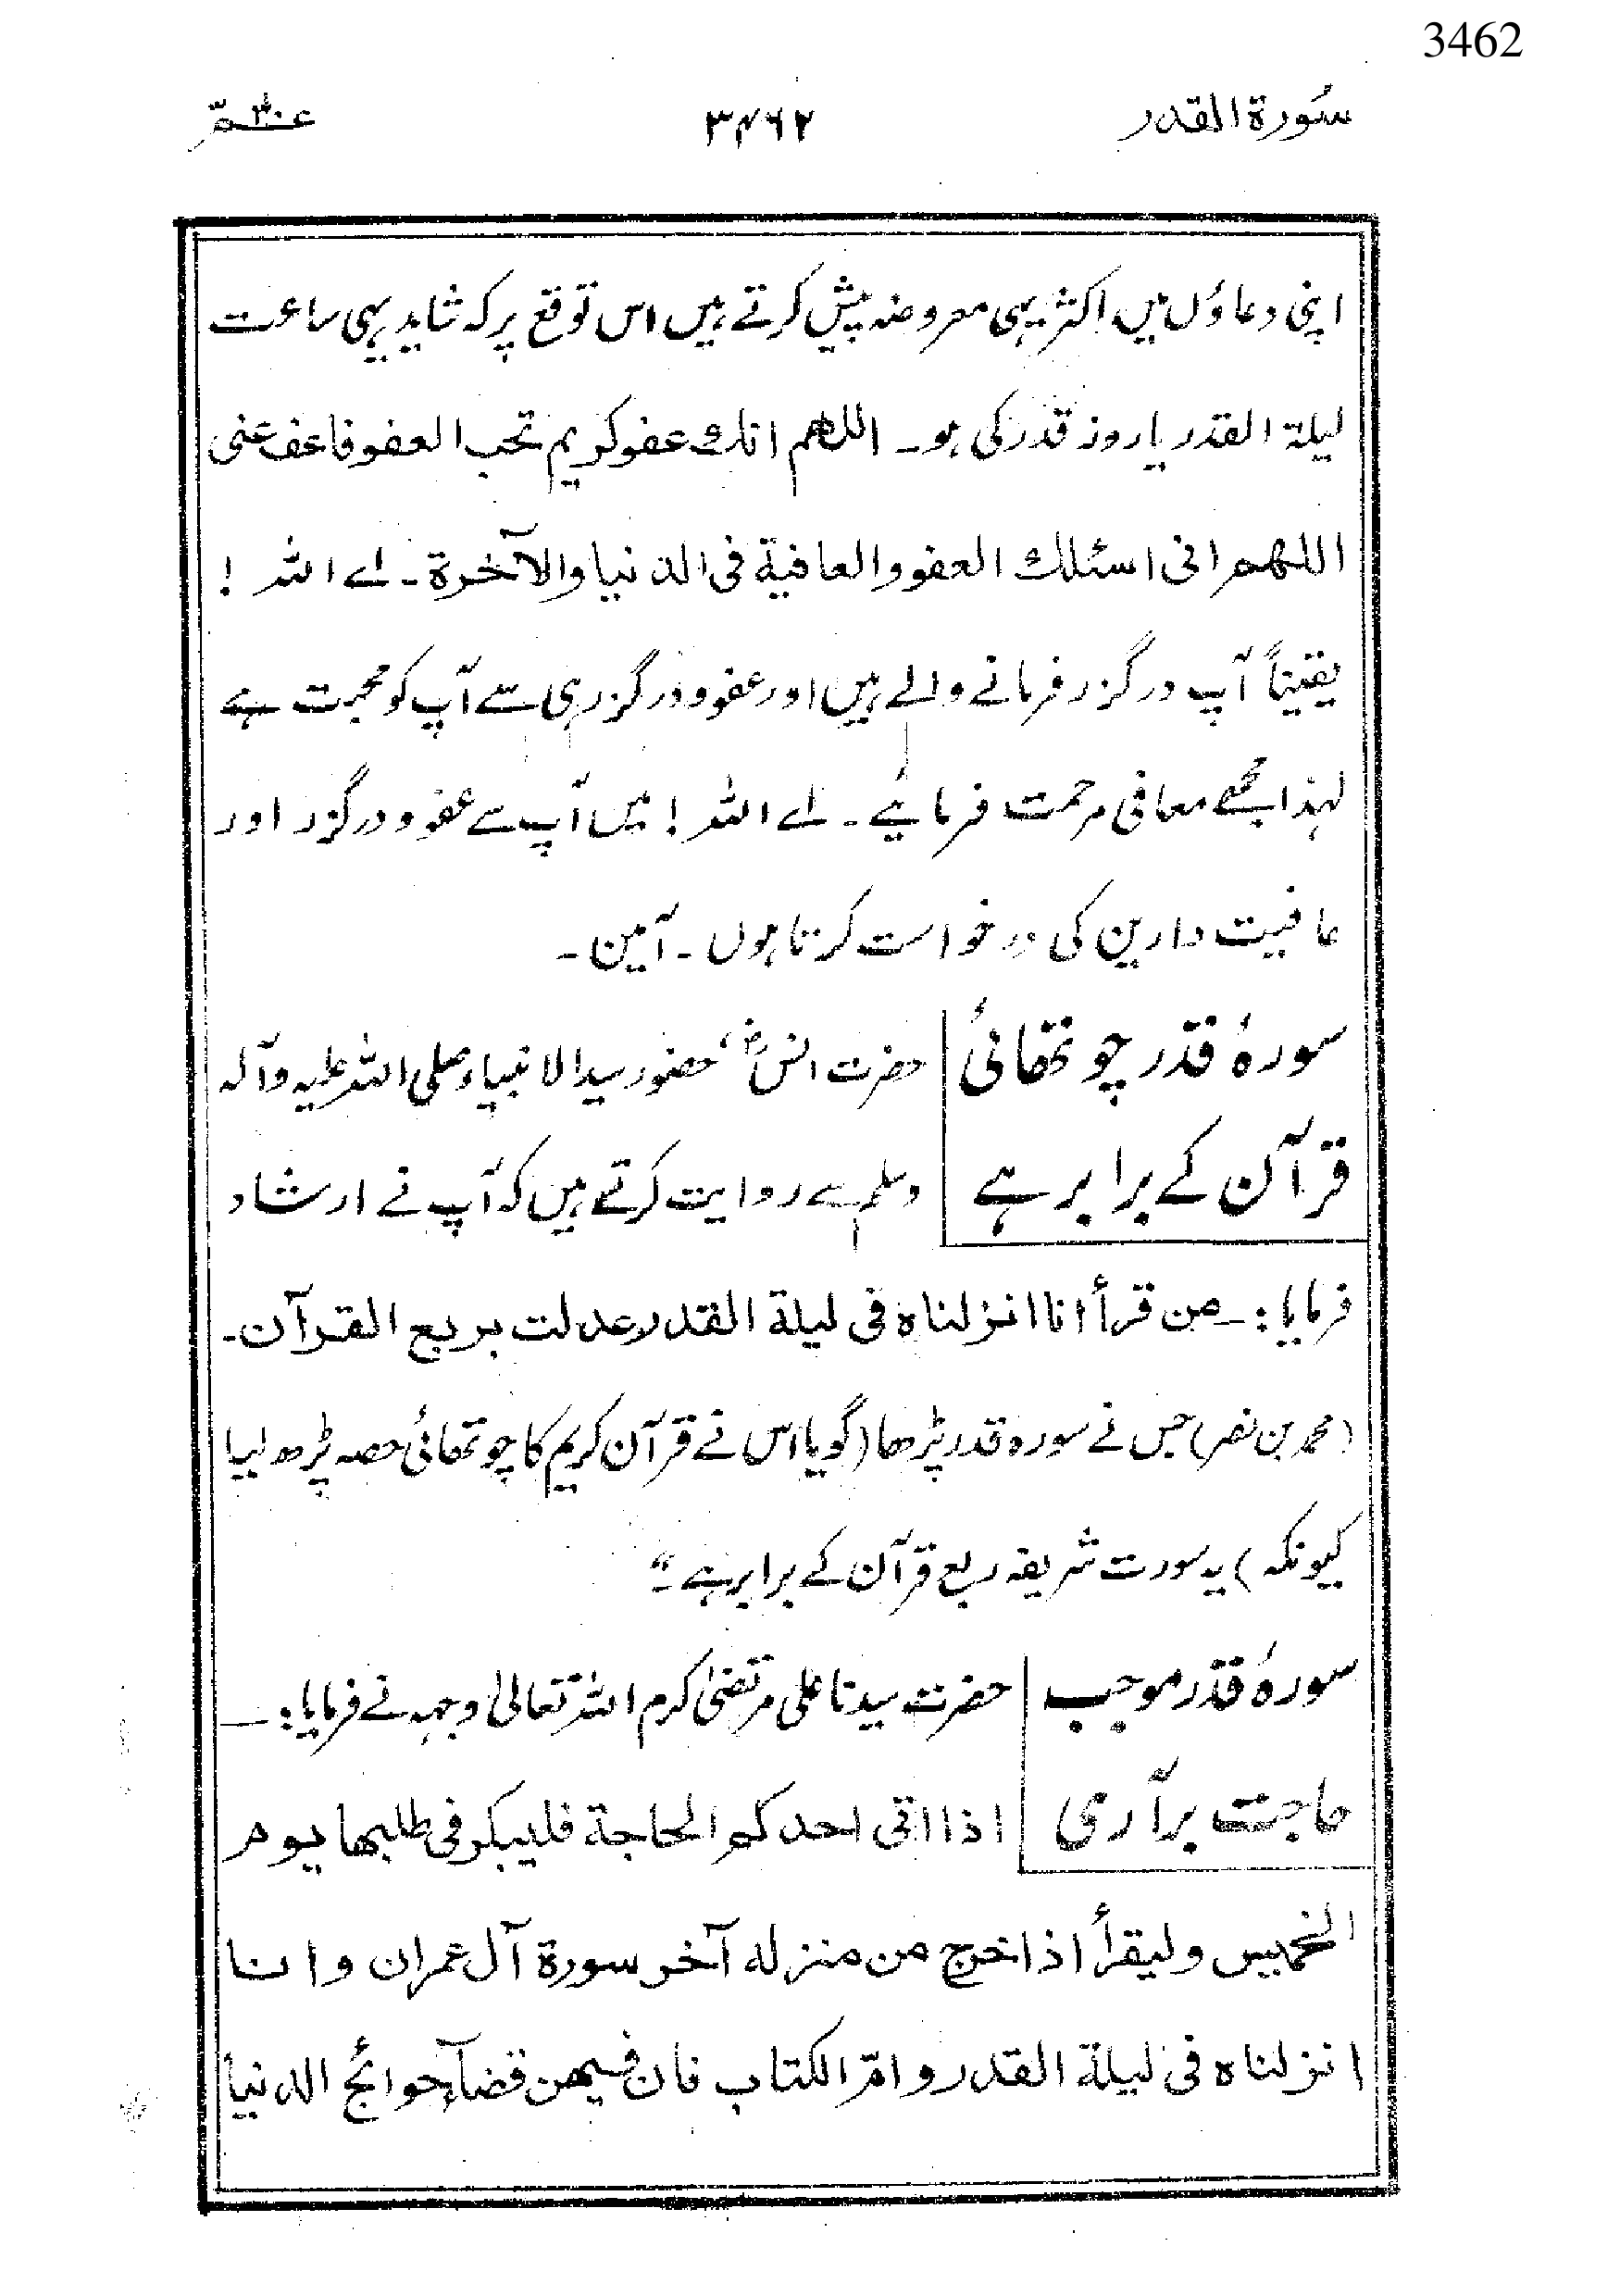 3462
سُورة القدر
۳۴۶۲
عم ۳۰
اپنی دعاؤں میں اکثر یہی معروضہ پیش کرتے ہیں اس توقع پر کہ شاید یہی ساعت
لیلۃ القدر یا روز قدر کی ہو۔ اللھم انك عفو کریم تحب العفو فاعف عنی
اللھم انی اسئلك العفو والعافیة فی الدنیا والآخرة۔ اے اللہ !
یقیناً آپ درگزر فرمانے والے ہیں اور عفو و درگزر ہی سے آپ کو محبت ہے
لہذا مجھے معافی مرحمت فرمایئے۔ اے اللہ ! میں آپ سے عفو و درگزر اور
عافیت دارین کی درخواست کرتا ہوں۔ آمین۔
سورۂ قدر چوتھائی حضرت انسؓ، حضور سید الانبیاء صلی اللہ علیہ وآلہ
قرآن کے برابر ہے وسلم سے روایت کرتے ہیں کہ آپ نے ارشاد
فرمایا:۔ من قرأ انا انزلناہ فی لیلة القدر عدلت بربع القرآن۔
(محمد بن نصر) جس نے سورہ قدر پڑھا (گویا اس نے قرآن کریم کا چوتھائی حصہ پڑھ لیا
کیونکہ) یہ سورت شریفہ ربع قرآن کے برابر ہے۔"
سورۂ قدر موجب حضرت سیدنا علی مرتضیٰ کرم اللہ تعالیٰ وجہہ نے فرمایا:۔
حاجت برآری اذا اتی احدکم الحاجة فلیبکر فی طلبھا یوم
الخمیس ولیقرأ اذا خرج من منزله آخر سورة آل عمران وانا
انزلناہ فی لیلة القدر وامّ الکتاب فان فیھن قضآء حوائج الدنیا